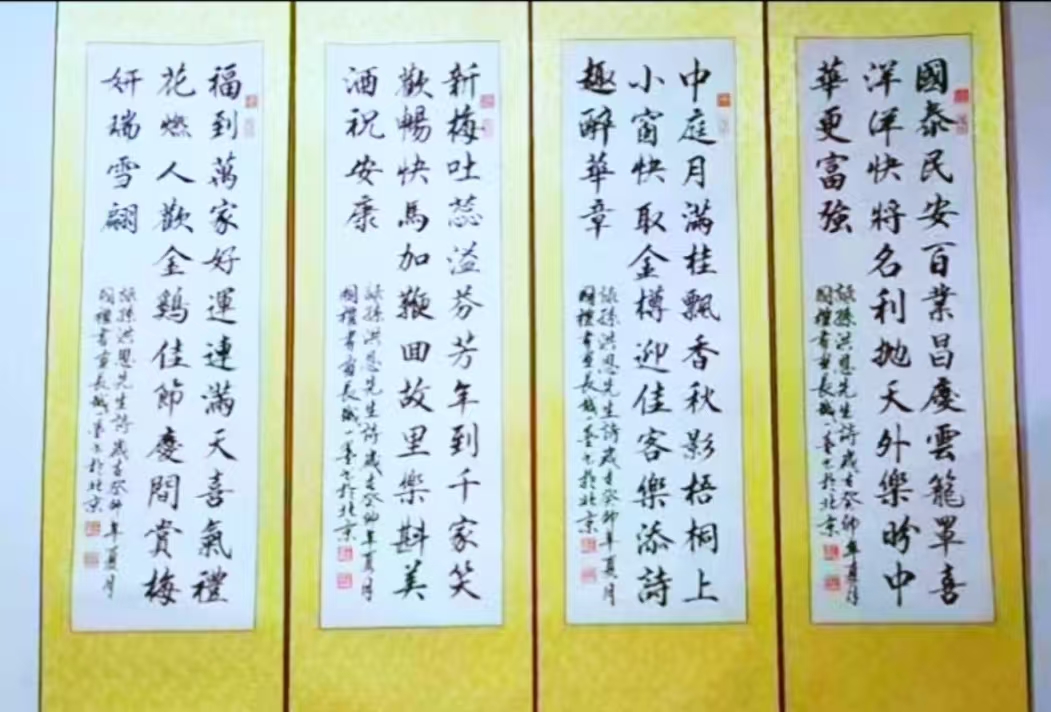 國泰民安百業昌慶雲籠罩喜
洋洋快將名利拋天外樂盼中
華更富強
錄孫洪恩先生詩歲在癸卯年夏月
國禮書畫長城一墨书於北京
中庭月滿桂飄香秋影梧桐上
小窗快取金樽迎佳客樂添詩
趣醉華章
錄孫洪恩先生詩歲在癸卯年夏月
國禮書畫長城一墨书於北京
新梅吐蕊溢芬芳年到千家笑
歡暢快馬加鞭回故里樂斟美
酒祝安康
錄孫洪恩先生詩歲在癸卯年夏月
國禮書畫長城一墨书於北京
福到萬家好運連滿天喜氣禮
花燃人歡金鷄佳節慶間賞梅
妍瑞雪翩
錄孫洪恩先生詩歲在癸卯年夏月
國禮書畫長城一墨书於北京